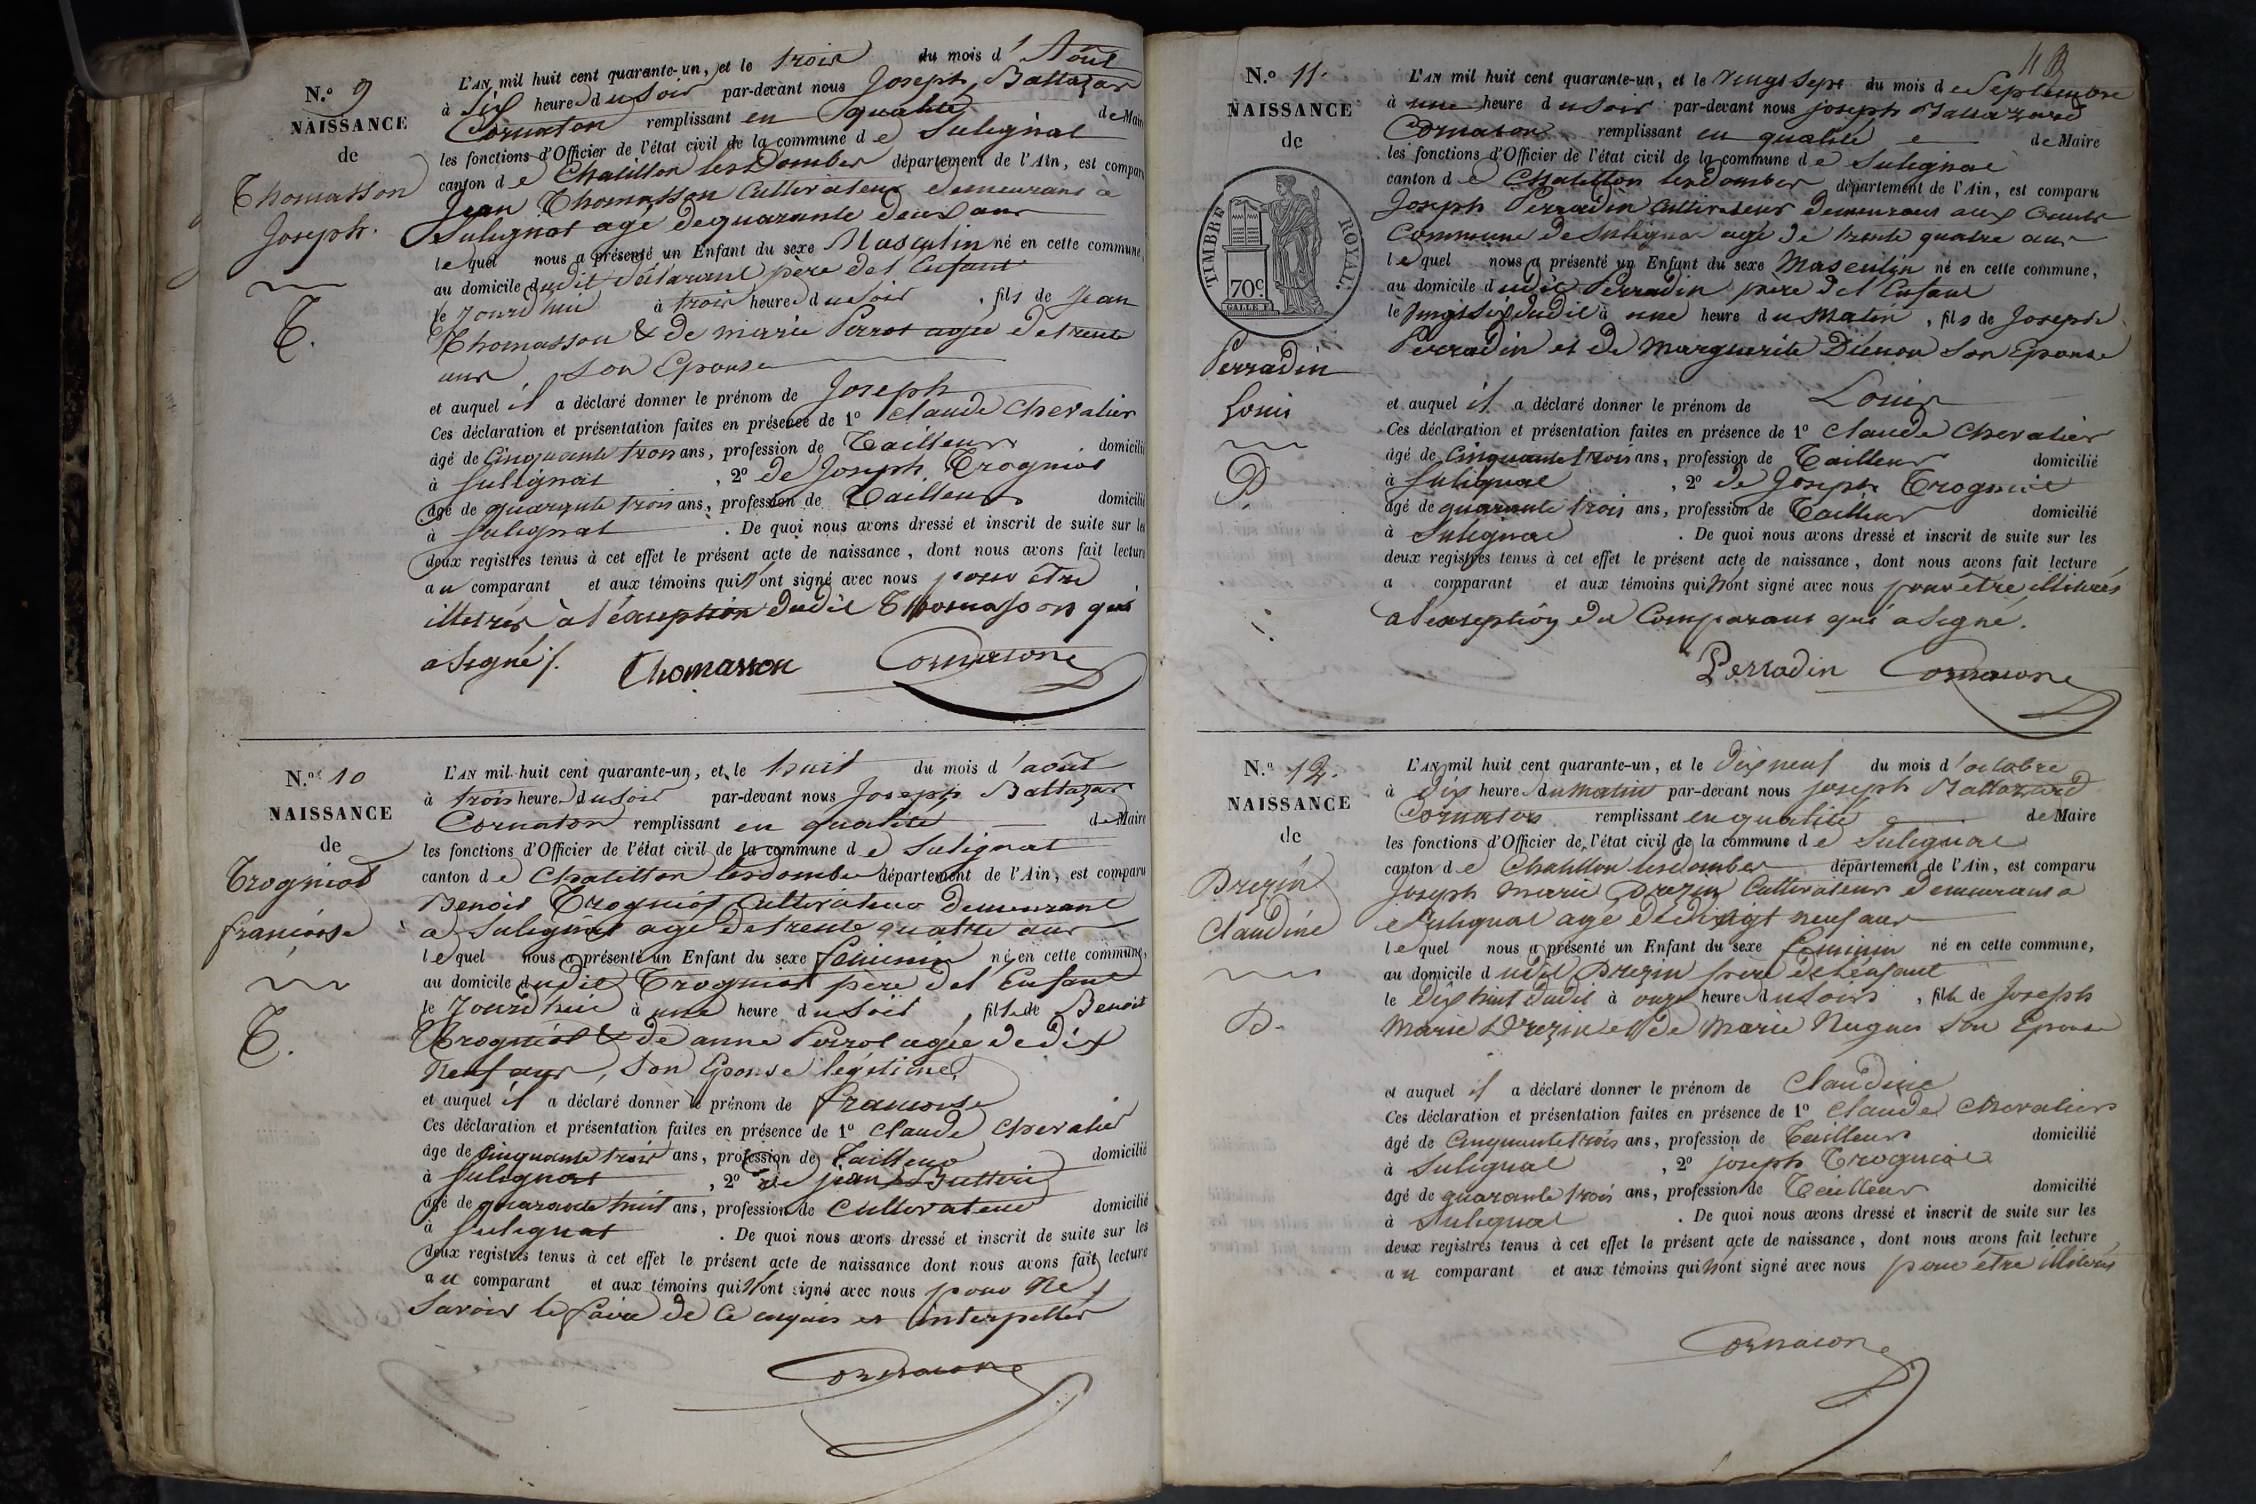 N.o 9
NAISSANCE
de
Thomasson
Joseph.
T.
L'AN mil huit cent quarante-un, et le trois du mois d'Août
à Six heure du Soir par-devant nous Joseph Baltazar
Cornaton remplissant en qualité de Maire
les fonctions d'Officier de l'état civil de la commune de Sulignat
canton de Chatillon les Dombes département de l'Ain, est comparu
Jean Thomasson Cultivateur demeurant à
Sulignat agé de quarante deux ans
lequel nous a présenté un Enfant du sexe Masculin né en cette commune,
au domicile dudit déclarant père de l'Enfant
le Jourd'hui à trois heure du soir, fils de Jean
Thomasson & de marie Perrot agée de trente
ans Son Epouse
et auquel il a déclaré donner le prénom de Joseph
Ces déclaration et présentation faites en présence de 1º Claude Chevalier
âgé de Cinquante trois ans, profession de Tailleur domicilié
à Sulignat, 2º de Joseph Trogniot
âgé de quarante trois ans, profession de Tailleur domicilié
à Sulignat. De quoi nous avons dressé et inscrit de suite sur les
deux registres tenus à cet effet le présent acte de naissance, dont nous avons fait lecture
au comparant et aux témoins qui n'ont signé avec nous pour être
illetrés à l'éxseption dudit Thomasson qui
a Signé /.
Thomasson Cornatone
N.o 10
NAISSANCE
de
Trogniot
françoise
T.
L'AN mil huit cent quarante-un, et le huit du mois d'août
à trois heure du Soir par-devant nous Joseph Baltazar
Cornaton remplissant en qualité de Maire
les fonctions d'Officier de l'état civil de la commune de Sulignat
canton de Chatillon les dombes département de l'Ain, est comparu
Benoit Trogniot Cultivateur demeurant
a Sulignat agé de trente quatre ans
lequel nous a présenté un Enfant du sexe féminin né en cette commune,
au domicile dudit Trogniot père de l'Enfant
le Jourd'hui à une heure du Soir, fille de Benoit
Trogniot & de anne Perrot agée de dix
Neuf ans, Son Epouse légitime,
et auquel il a déclaré donner le prénom de françoise
Ces déclaration et présentation faites en présence de 1º Claude Chevalier
âge de Cinquante trois ans, profession de Tailleur domicilié
à Sulignat, 2º de jean Butteri
âgé de quarante huit ans, profession de Cultivateur domicilié
à Sulignat. De quoi nous avons dressé et inscrit de suite sur les
deux registres tenus à cet effet le présent acte de naissance dont nous avons fait lecture
au comparant et aux témoins qui n'ont signé avec nous pour Ne
Savoir le faire de Ce enquis et interpellés
Cornatone
N.o 11.
NAISSANCE
de
TIMBRE ROYAL.
70c
Perradin
Louis
P.
L'AN mil huit cent quarante-un, et le vingt Sept du mois de Septembre
à une heure du Soir par-devant nous joseph Baltazard
Cornaton remplissant en qualité de Maire
les fonctions d'Officier de l'état civil de la commune de Sulignat
canton de Chatillon les dombes département de l'Ain, est comparu
Joseph Perradin Cultivateur demeurant aux
Commune de Sulignat agé de trente quatre ans
lequel nous a présenté un Enfant du sexe Masculin né en cette commune,
au domicile dudit Perradin père de l'Enfant
le vingt Six dudit à une heure du Matin, fils de Joseph
Perradin et de Marguerite Diénon Son Epouse
et auquel il a déclaré donner le prénom de Louis
Ces déclaration et présentation faites en présence de 1º Claude Chevalier
âgé de Cinquante trois ans, profession de Tailleur domicilié
à Sulignat, 2º de Joseph Trogniot
âgé de quarante trois ans, profession de Tailleur domicilié
à Sulignat. De quoi nous avons dressé et inscrit de suite sur les
deux registres tenus à cet effet le présent acte de naissance, dont nous avons fait lecture
a comparant et aux témoins qui n'ont signé avec nous pour être illetrés
a l'exseption du Comparant qui a Signé.
Perradin Cornatone
N.o 12.
NAISSANCE
de
Drezin
Claudine
D.
L'AN mil huit cent quarante-un, et le dix neuf du mois d'octobre
à dix heure du matin par-devant nous joseph Baltazard
Cornaton remplissant en qualité de Maire
les fonctions d'Officier de l'état civil de la commune de Sulignat
canton de Chatillon les dombes département de l'Ain, est comparu
Joseph Marie Drezin Cultivateur demeurant a
Sulignat agé de vingt neuf ans
lequel nous a présenté un Enfant du sexe féminin né en cette commune,
au domicile dudit Drezin père de l'énfant
le Dix huit dudit à onze heure du Soir, fille de Joseph
Marie Drezin et de Marie Nugues Son Epouse
et auquel il a déclaré donner le prénom de Claudine
Ces déclaration et présentation faites en présence de 1º Claude Chevalier
âgé de Cinquante trois ans, profession de Tailleur domicilié
à Sulignat, 2º joseph Trogniot
âgé de quarante trois ans, profession de Tailleur domicilié
à Sulignat. De quoi nous avons dressé et inscrit de suite sur les
deux registres tenus à cet effet le présent acte de naissance, dont nous avons fait lecture
au comparant et aux témoins qui n'ont signé avec nous pour être illetrés
Cornatone